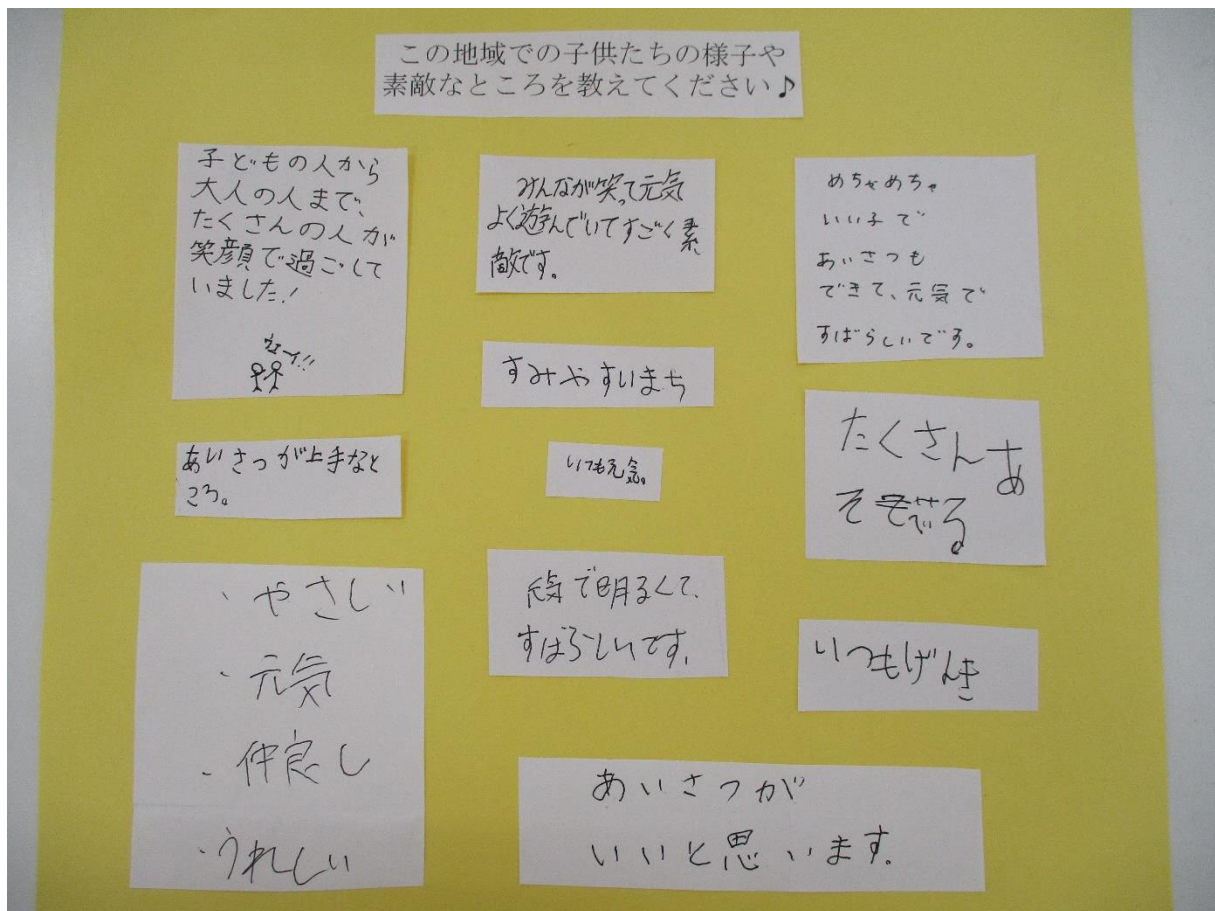 この地域での子供たちの様子や
素敵なところを教えてください♪
子どもの人から
大人の人まで、
たくさんの人が
笑顔で過ごして
いました!
ウェーイ!!
みんなが笑って元気
よく遊んでいてすごく素
敵です。
めちゃめちゃ
いい子で
あいさつも
できて、元気で
すばらしいです。
すみやすいまち
あいさつが上手なと
ころ。
いつも元気。
たくさんあ
そべる
・やさしい
・元気
・仲良し
・うれしい
元気で明るくて、
すばらしいです。
いつもげんき
あいさつが
いいと思います。